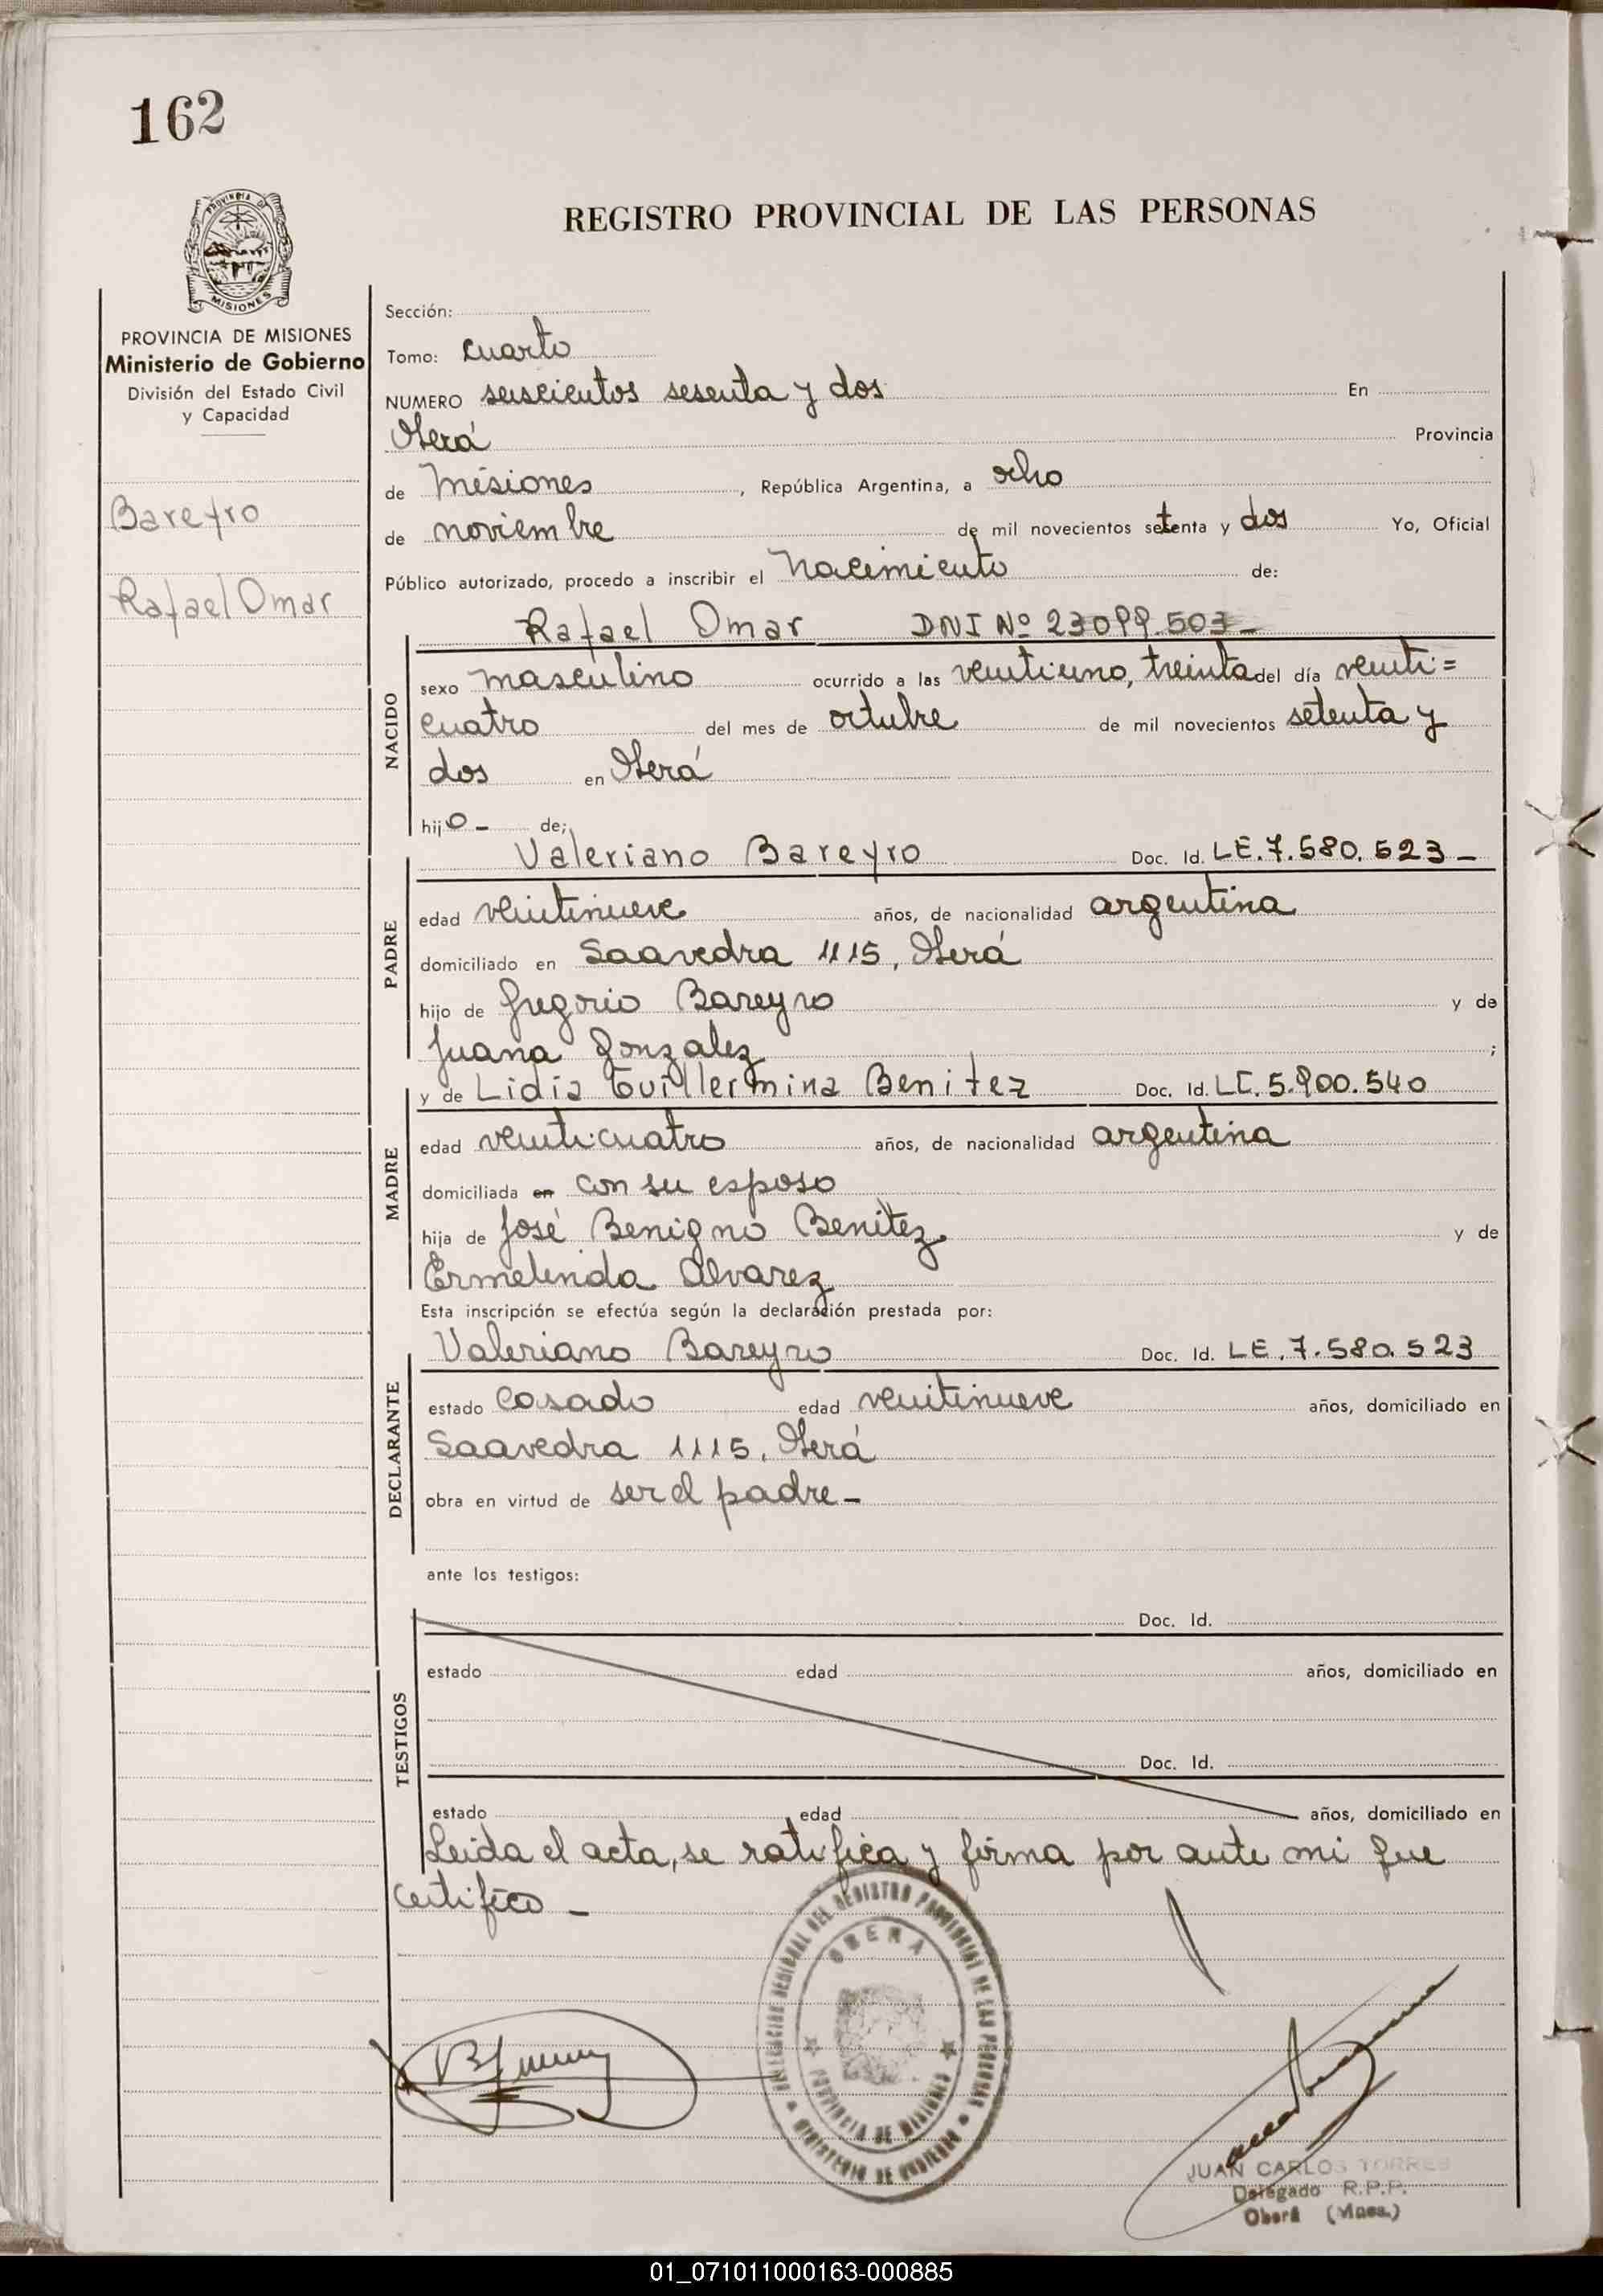 162
PROVINCIA DE
MISIONES
REGISTRO PROVINCIAL DE LAS PERSONAS
PROVINCIA DE MISIONES
Ministerio de Gobierno
División del Estado Civil
y Capacidad
Bareyro
Rafael Omar
Sección:
Tomo: cuarto
NUMERO seiscientos sesenta y dos En
Oberá Provincia
de Misiones, República Argentina, a ocho
de noviembre de mil novecientos setenta y dos Yo, Oficial
Público autorizado, procedo a inscribir el Nacimiento de:
Rafael Omar DNI Nº 23099.503-
NACIDO
sexo masculino ocurrido a las veintiuno, treinta del día veinti=
cuatro del mes de octubre de mil novecientos setenta y
dos en Oberá
hijo- de;
Valeriano Bareyro Doc. Id. LE.7.580.523-
PADRE
edad veintinueve años, de nacionalidad argentina
domiciliado en Saavedra 1115, Oberá
hijo de Gregorio Bareyro y de
Juana Gonzalez ;
y de Lidia Guillermina Benitez Doc. Id. LC.5.900.540
MADRE
edad veinticuatro años, de nacionalidad argentina
domiciliada en con su esposo
hija de José Benigno Benitez y de
Ermelinda Alvarez
Esta inscripción se efectúa según la declaración prestada por:
Valeriano Bareyro Doc. Id. LE.7.580.523
DECLARANTE
estado casado edad veintinueve años, domiciliado en
Saavedra 1115, Oberá
obra en virtud de ser el padre-
ante los testigos:
Doc. Id.
TESTIGOS
estado edad años, domiciliado en
Doc. Id.
estado edad años, domiciliado en
Leida el acta, se ratifica y firma por ante mi que
certifico-
DELEGACION REGIONAL DEL REGISTRO PROVINCIAL DE LAS PERSONAS
MINISTERIO DE GOBIERNO
OBERA
PROVINCIA DE MISIONES
JUAN CARLOS TORRES
Delegado R.P.P.
Oberá (Mnes.)
01_071011000163-000885